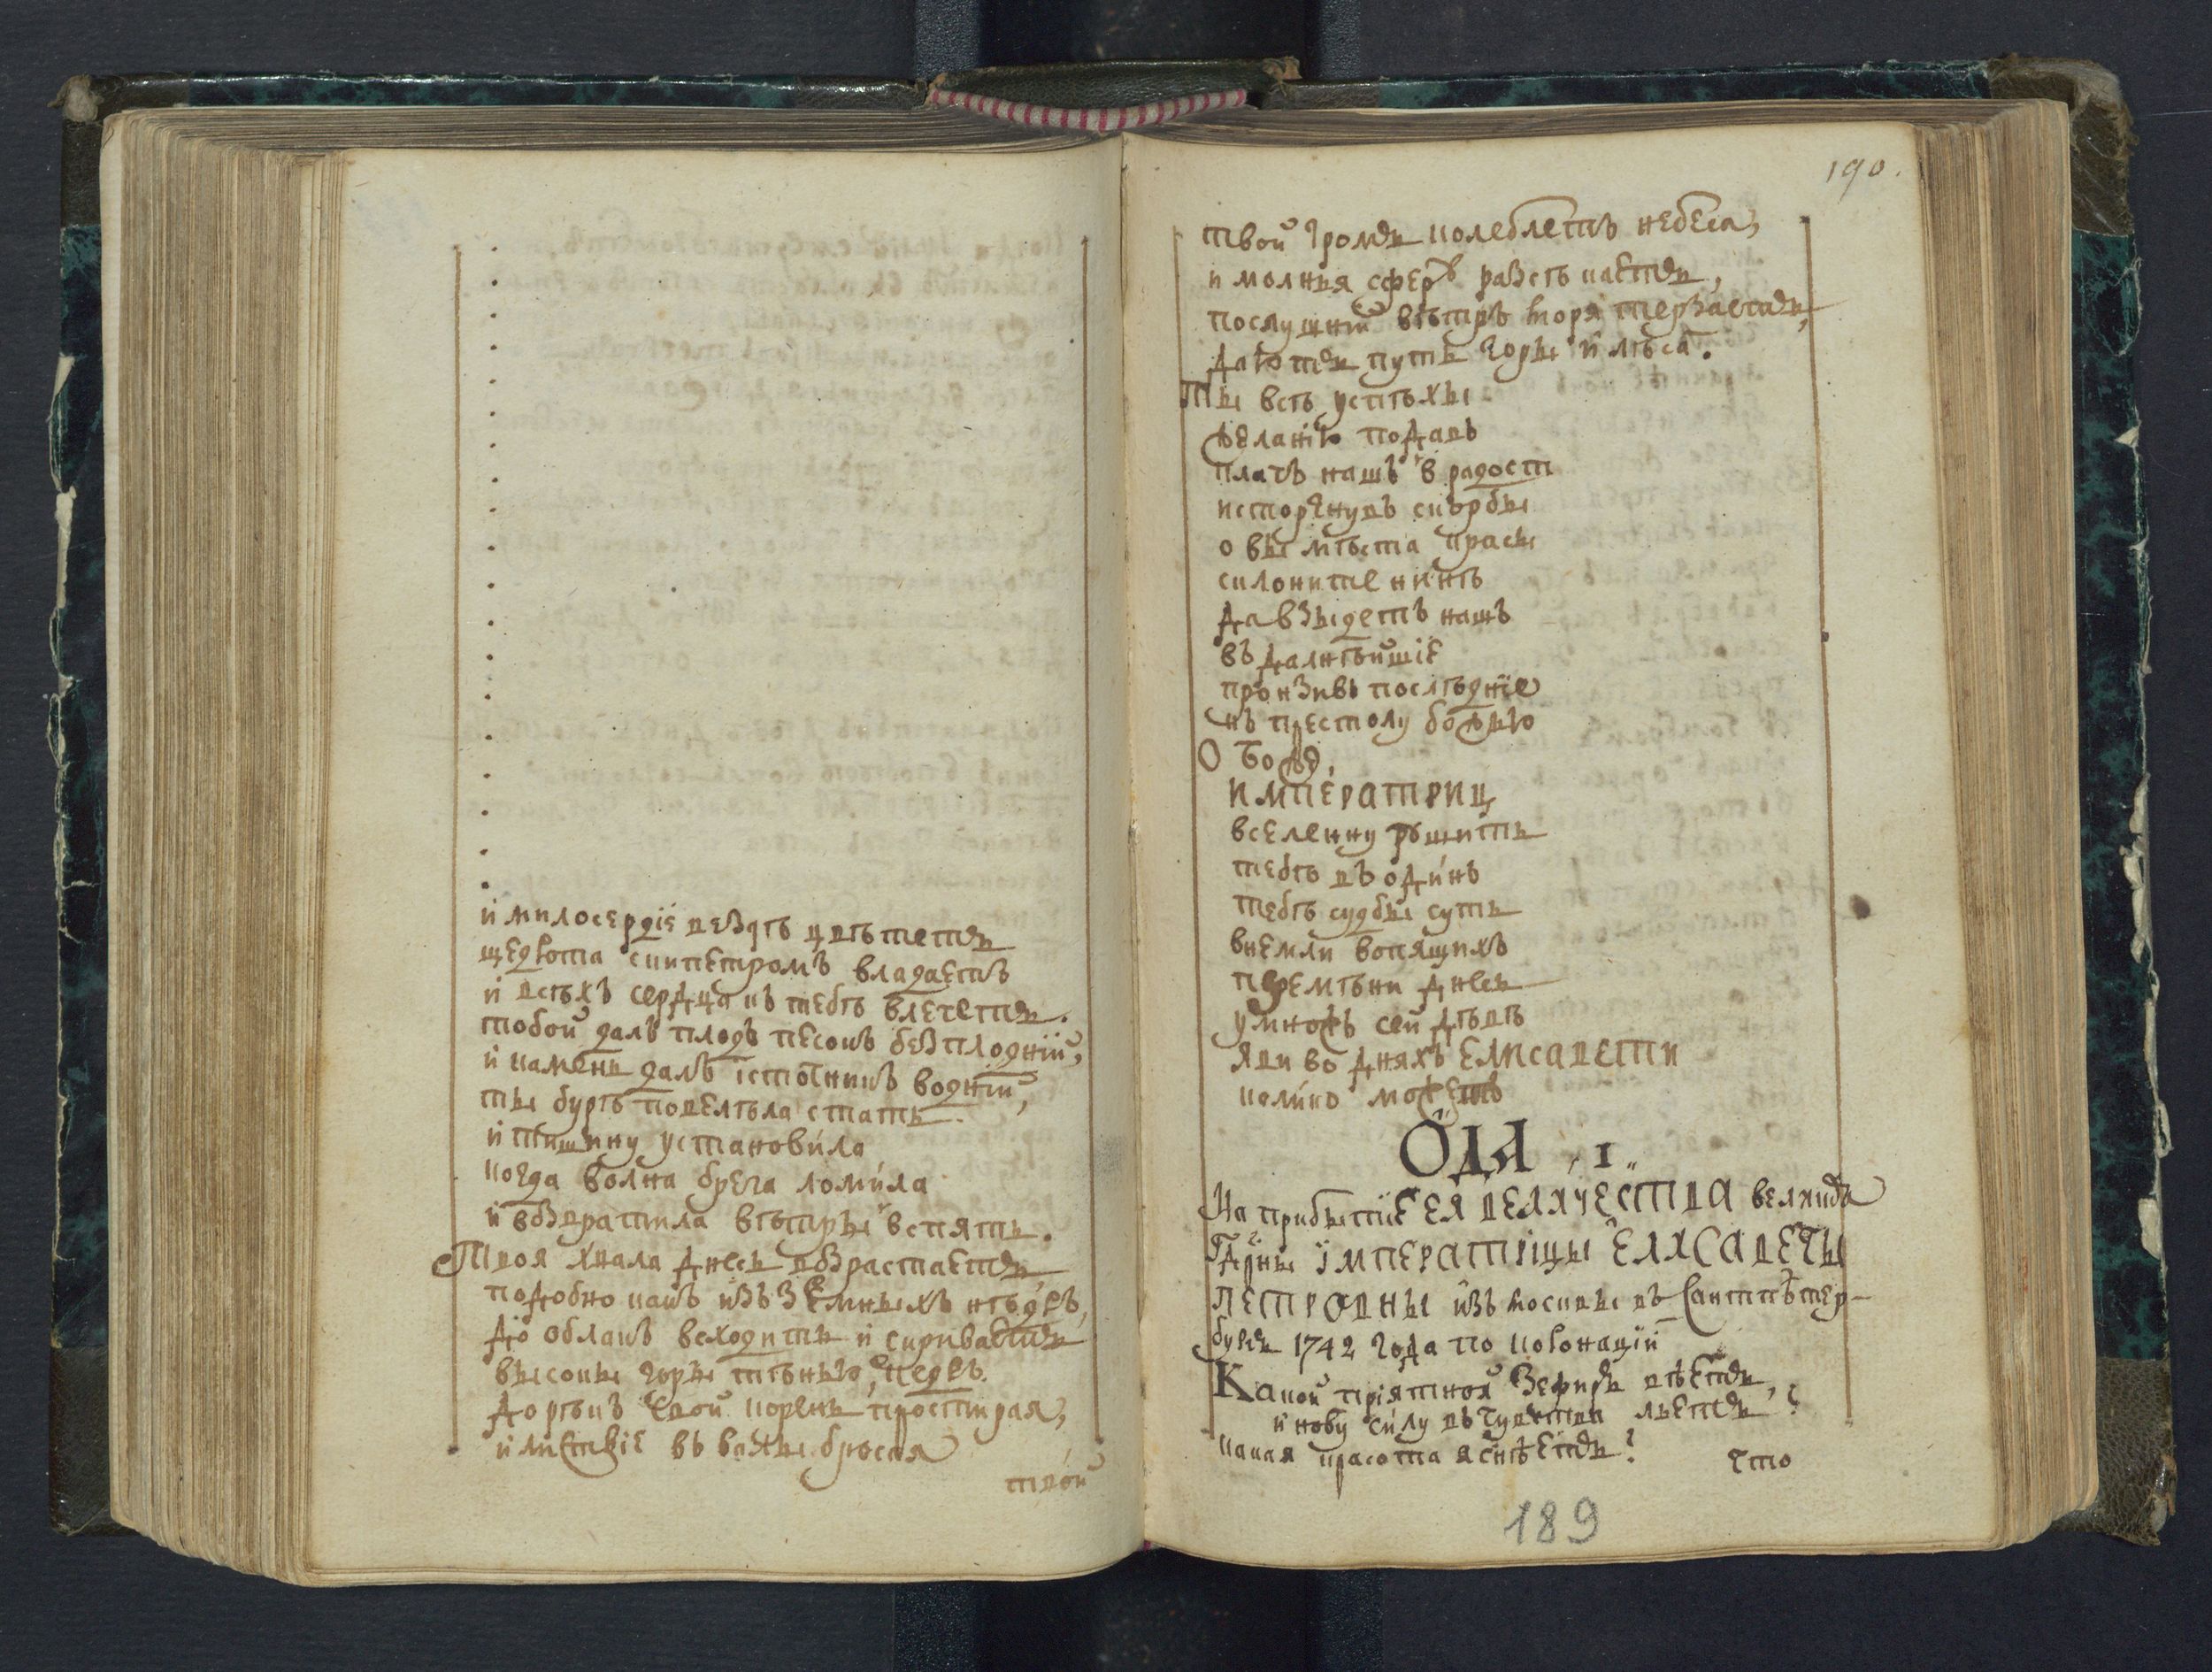 и милосердїе вездѣ цвѣтетъ
щедрота скипетромъ владаетъ
и всѣхъ сердца къ тебѣ влечетъ.
тобой далъ плодъ песокъ безплоднїй,
и камень далъ їсточникъ воднїй,
ты бурѣ повелѣла стать
и тишину установила
когда волна брега ломила
и возвратила вѣтры вспять.
Твоя хвала днесь возрастаетъ
подобно какъ изъ земныхъ нѣдръ,
до облакъ всходитъ и скриваетъ
высоки горы тѣнью, кедръ.
до рѣкъ свой корень простирая,
и листвїе въ валы бросая
твой
190.
твой громъ колеблетъ небеса,
и молнїя сферъ разсѣкаетъ,
послушнїй вѣтръ моря терзаетъ,
даютъ путь горы и лѣса.
Ты всѣ успѣхы
желанїю подавъ
плачъ нашъ в радост
исторгнувъ скорбы
о вы мѣста красы
склоните нинѣ
да взыдетъ нашъ
въ далнѣйшїе
пронзивъ послѣднїе
къ престолу божью
О Боже,
императриц
вселенну рѣшить
тебѣ въ одинъ
тебѣ судбы суть
внемли вопящихъ
перемѣни днесь
умножъ сей дѣвѣ
яви во дняхъ Елисавети
колико можетъ
Ода 1
На прибытїе ея величества великїя
Гдрны Їмператрїцы Елисаветы
Петровны изъ москвы въ Санктпѣтер-
бургъ 1742 года по коронацїи
Какой прїятной Зефиръ вѣетъ,
и нову силу въ чувства льетъ?
какая красота яснѣетъ?
что
189